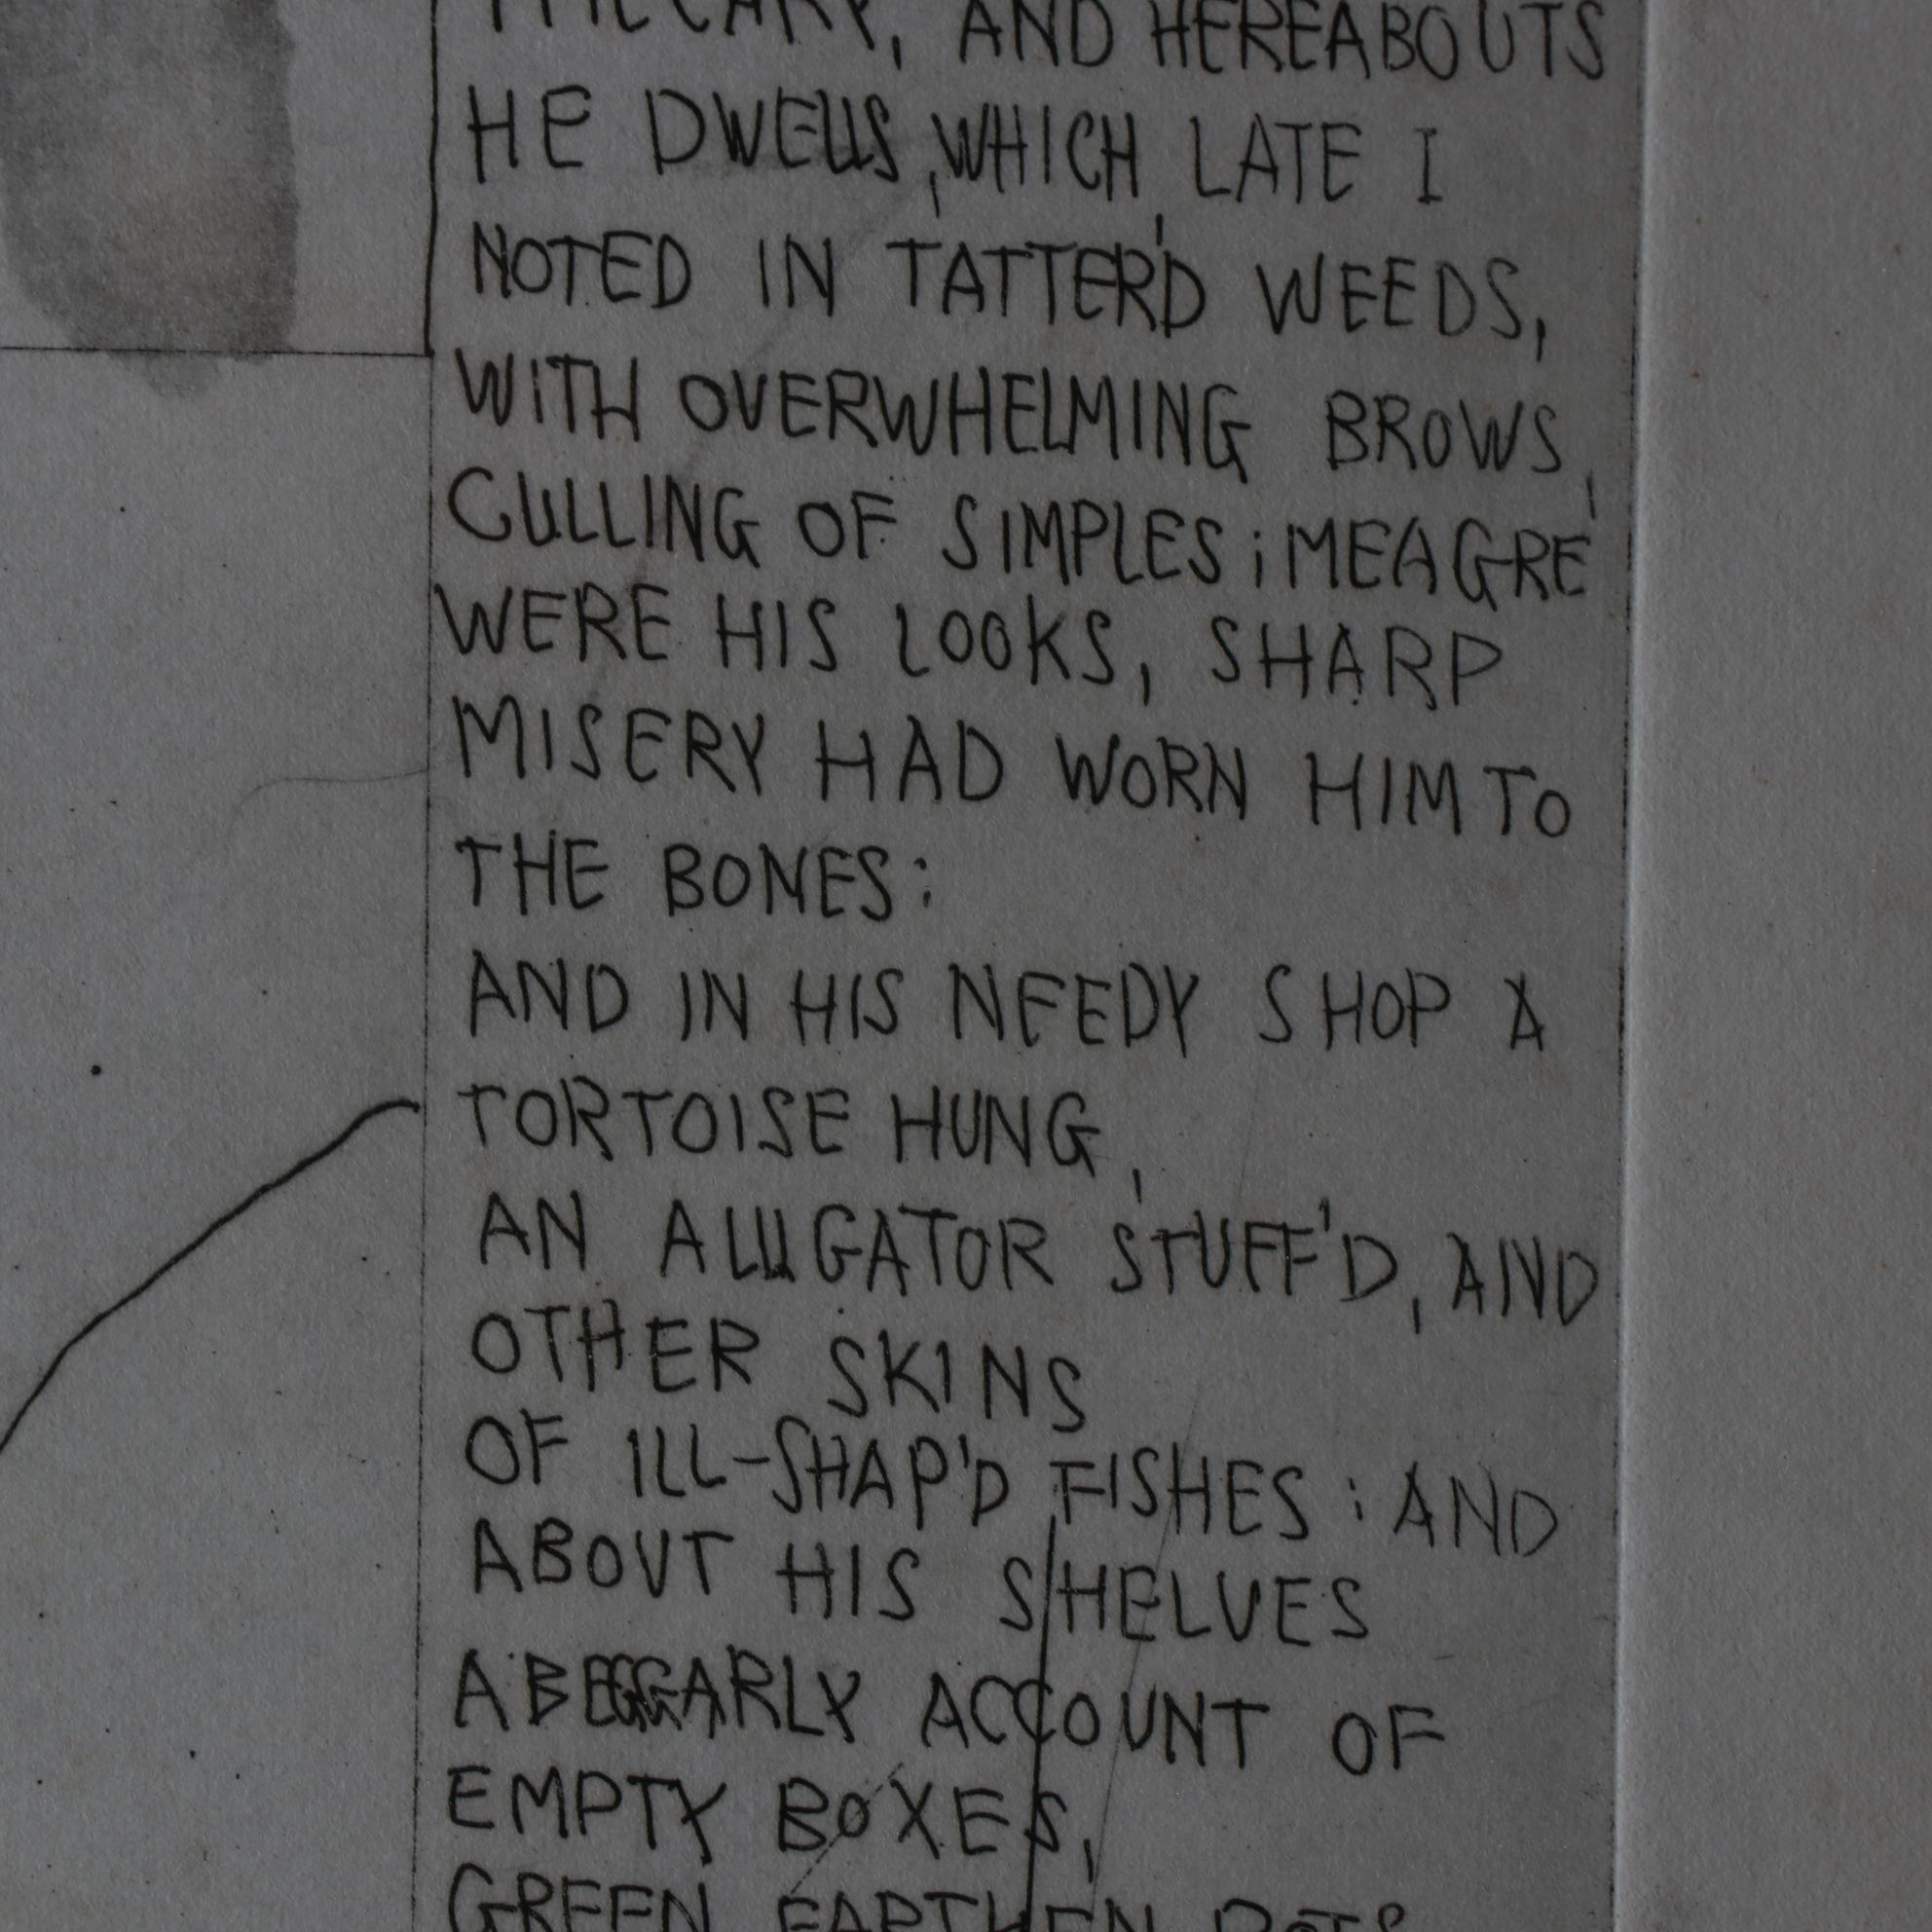 THECARY, AND HEREABOUTS
HE DWELLS, WHICH LATE I
NOTED IN TATTER'D WEEDS,
WITH OVERWHELMING BROWS,
CULLING OF SIMPLES; MEAGRE
WERE HIS LOOKS, SHARP
MISERY HAD WORN HIM TO
THE BONES:
AND IN HIS NEEDY SHOP A
TORTOISE HUNG,
AN ALLIGATOR STUFF'D, AND
OTHER SKINS
OF ILL-SHAP'D FISHES: AND
ABOUT HIS SHELVES
A BEGGARLY ACCOUNT OF
EMPTY BOXES,
GREEN EARTHEN POTS